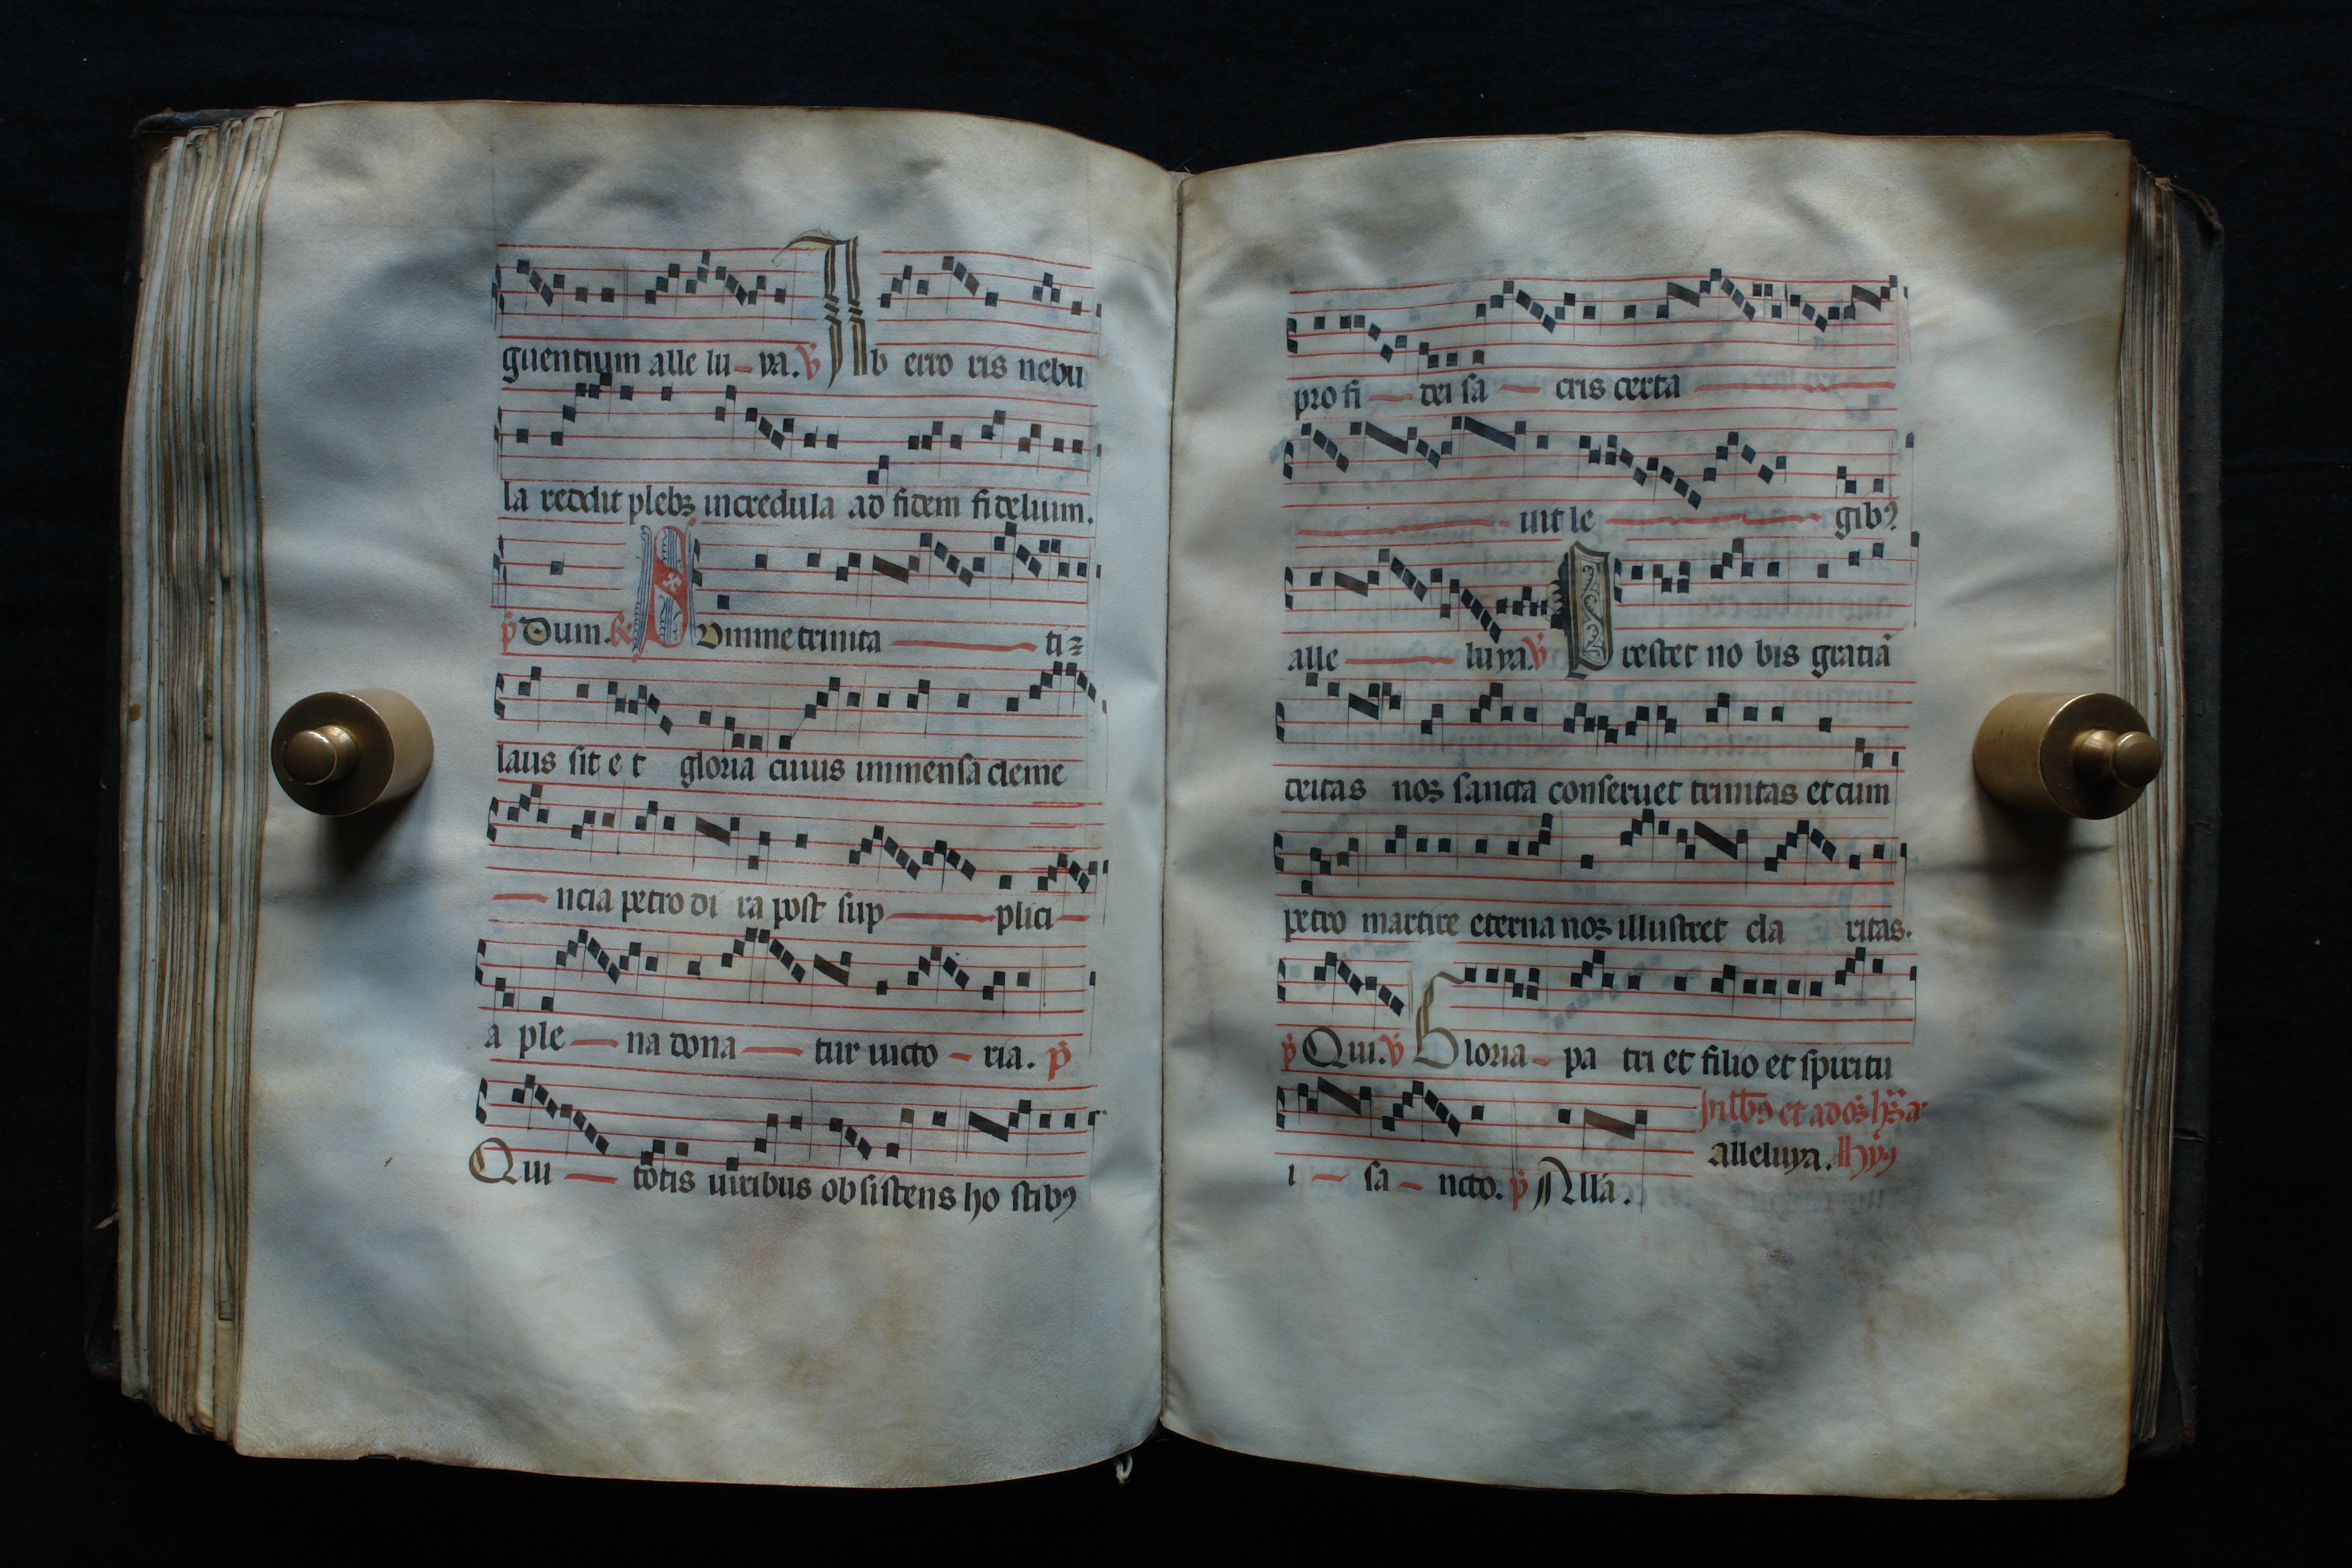 guentium alle lu ya. ꝟ Ab erro ris nebu
la reddit plebꝫ incredula ad fidem fidelium.
p̄ Dum. ꝶ Divine trinita ti
laus sit e t gloria cuius immensa cleme
ncia petro di ra post sup plici
a ple na dona tur uicto ria. p̄
Qui totis uiribus obsistens ho stibꝰ
pro fi dei sa cris certa
uit le gibꝰ
alle luya. ꝟ Prestet no bis gratiā
deitas nos sancta conseruet trinitas et cum
petro martire eterna nos illustret cla ritas.
p̄ Qui. ꝟ Gloria pa tri et filio et spiritu
i sa ncto. p̄ Alla.
alleluya.